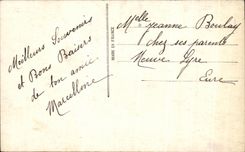 Meilleurs Souvenirs
et Bons Baisers
de ton amie
Marcelline
MADE IN FRANCE
Melle Jeanne Boulay
chez ses parents
Neuve Lyre
Eure